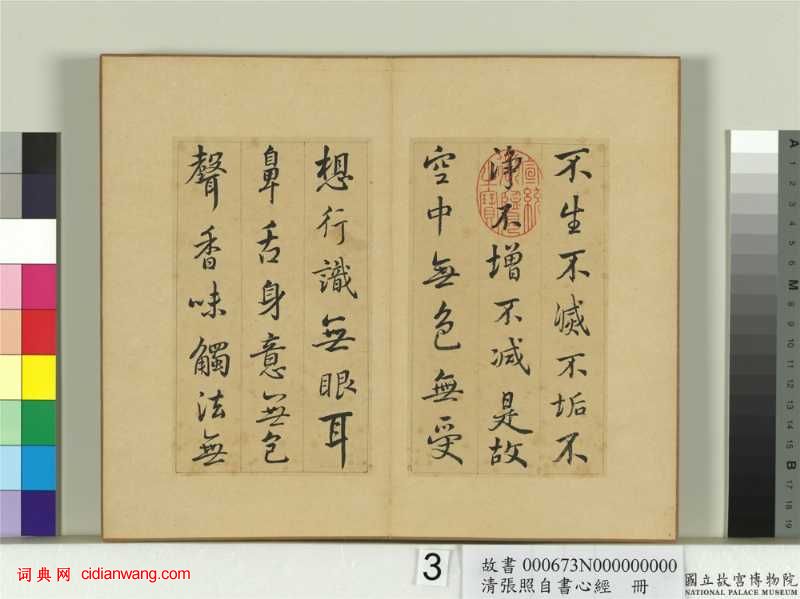 不生不滅不垢不
淨不增不減是故
空中無色無受
想行識無眼耳
鼻舌身意無色
聲香味觸法無
A
1
2
3
4
5
6
M
8
9
10
11
12
13
14
15
B
17
18
19
3
故書 000673N000000000
清張照自書心經 冊
國立故宮博物院
NATIONAL PALACE MUSEUM
词典网 cidianwang.com